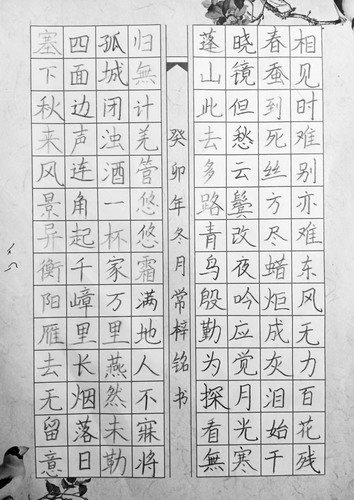 相见时难别亦难东风无力百花残
春蚕到死丝方尽蜡炬成灰泪始干
晓镜但愁云鬓改夜吟应觉月光寒
蓬山此去多路青鸟殷勤为探看無
癸卯年冬月常梓铭书
归無计羌管悠悠霜满地人不寐将
孤城闭浊酒一杯家万里燕然未勒
四面边声连角起千嶂里长烟落日
塞下秋来风景异衡阳雁去无留意